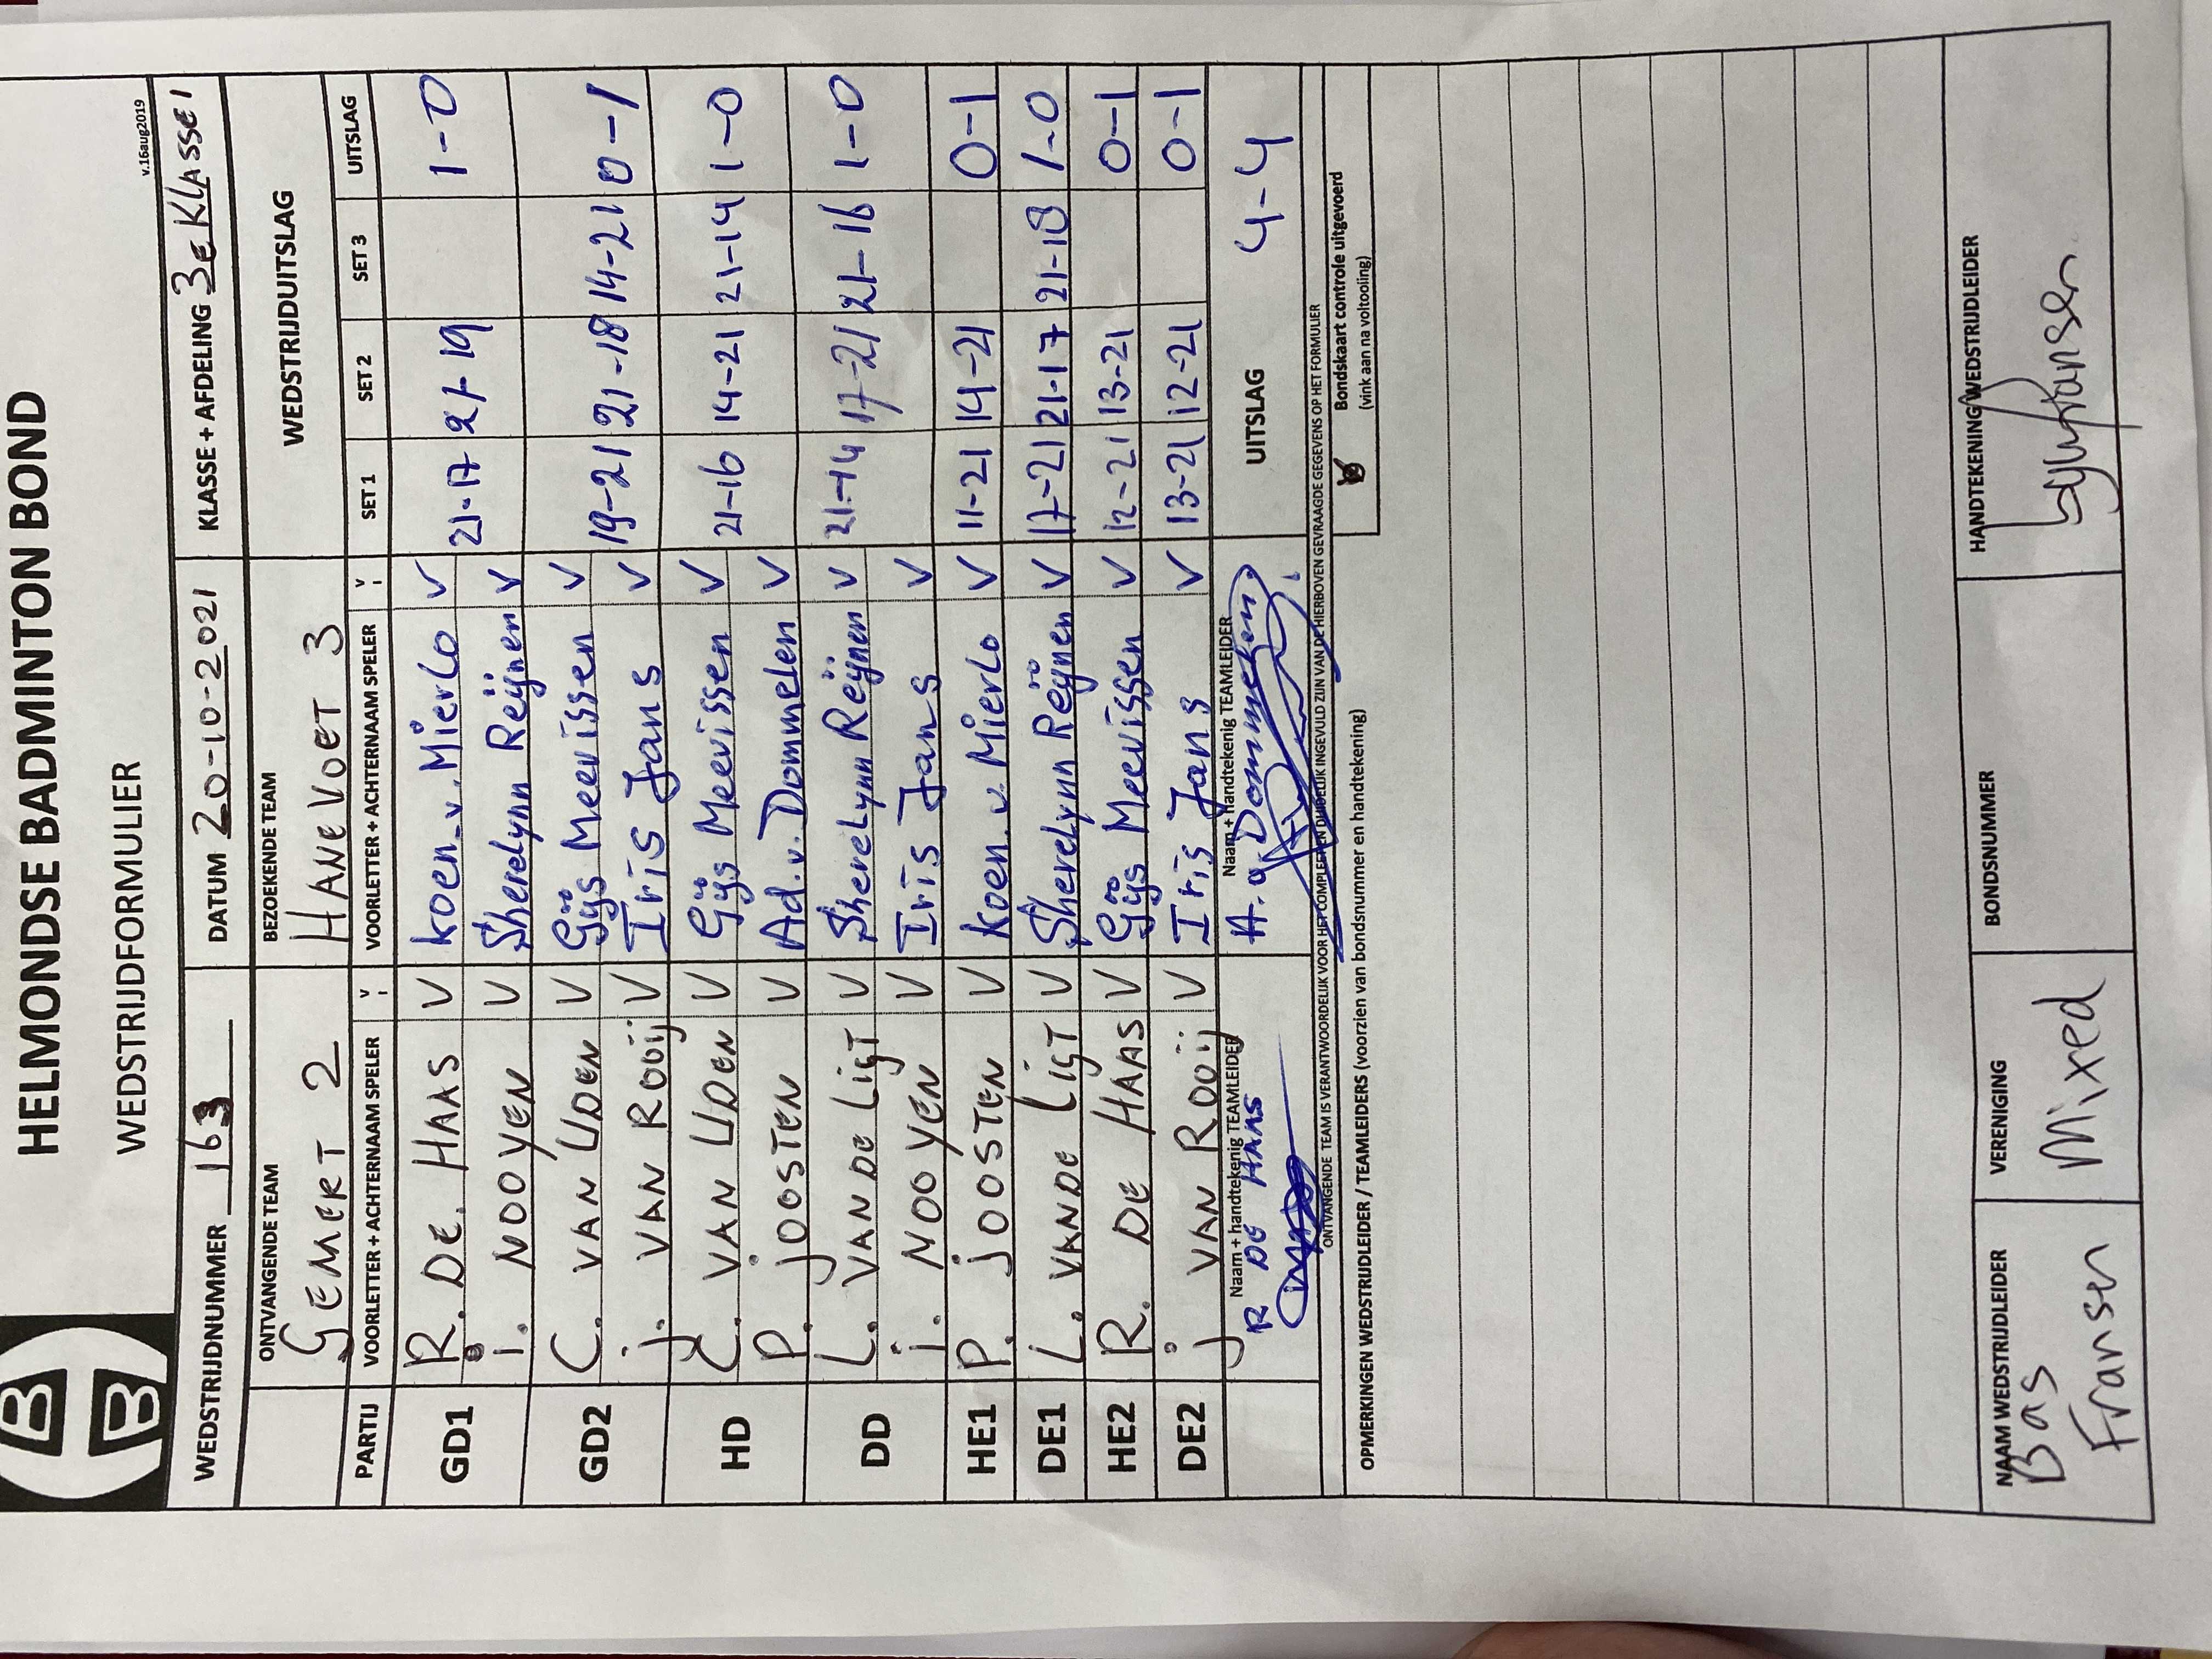 HELMONDSE BADMINTON BOND
WEDSTRIJDFORMULIER
v.16aug2019
WEDSTRIJDNUMMER 163 DATUM 20-10-2021 KLASSE + AFDELING 3e KLASSE 1
ONTVANGENDE TEAM BEZOEKENDE TEAM WEDSTRIJDUITSLAG
GEMERT 2 HANEVOET 3
PARTIJ VOORLETTER + ACHTERNAAM SPELER V VOORLETTER + ACHTERNAAM SPELER V SET 1 SET 2 SET 3 UITSLAG
GD1 R. DE. HAAS V Koen v. Mierlo V 21-17 21-19 1-0
i. NOOYEN V Sherelynn Reijnen V
GD2 C. VAN UDEN V Gijs Meevissen V 19-21 21-18 14-21 0-1
j. VAN ROOij V Iris Jans V
HD C. VAN UDEN V Gijs Meevissen V 21-16 14-21 21-14 1-0
P. jOOSTEN V Ad. v. Dommelen V
DD L. VAN DE LigT V Sherelynn Reijnen V 21-14 17-21 21-16 1-0
i. NOOYEN V Iris Jans V
HE1 P. jOOSTEN V Koen. v. Mierlo V 11-21 14-21 0-1
DE1 L. VAN DE LigT V Sherelynn Reijnen V 17-21 21-17 21-18 1-0
HE2 R. DE HAAS V Gijs Meevissen V 12-21 13-21 0-1
DE2 j VAN ROOij V Iris Jans V 13-21 12-21 0-1
Naam + handtekenig TEAMLEIDER Naam + handtekenig TEAMLEIDER UITSLAG 4-4
R DE HAAS A. v Dommelen
ONTVANGENDE TEAM IS VERANTWOORDELIJK VOOR HET COMPLEET EN DUIDELIJK INGEVULD ZIJN VAN DE HIERBOVEN GEVRAAGDE GEGEVENS OP HET FORMULIER
Bondskaart controle uitgevoerd
(vink aan na voltooiing)
OPMERKINGEN WEDSTRIJDLEIDER / TEAMLEIDERS (voorzien van bondsnummer en handtekening)
NAAM WEDSTRIJDLEIDER VERENIGING BONDSNUMMER HANDTEKENING WEDSTRIJDLEIDER
Bas Mixed
Fransen